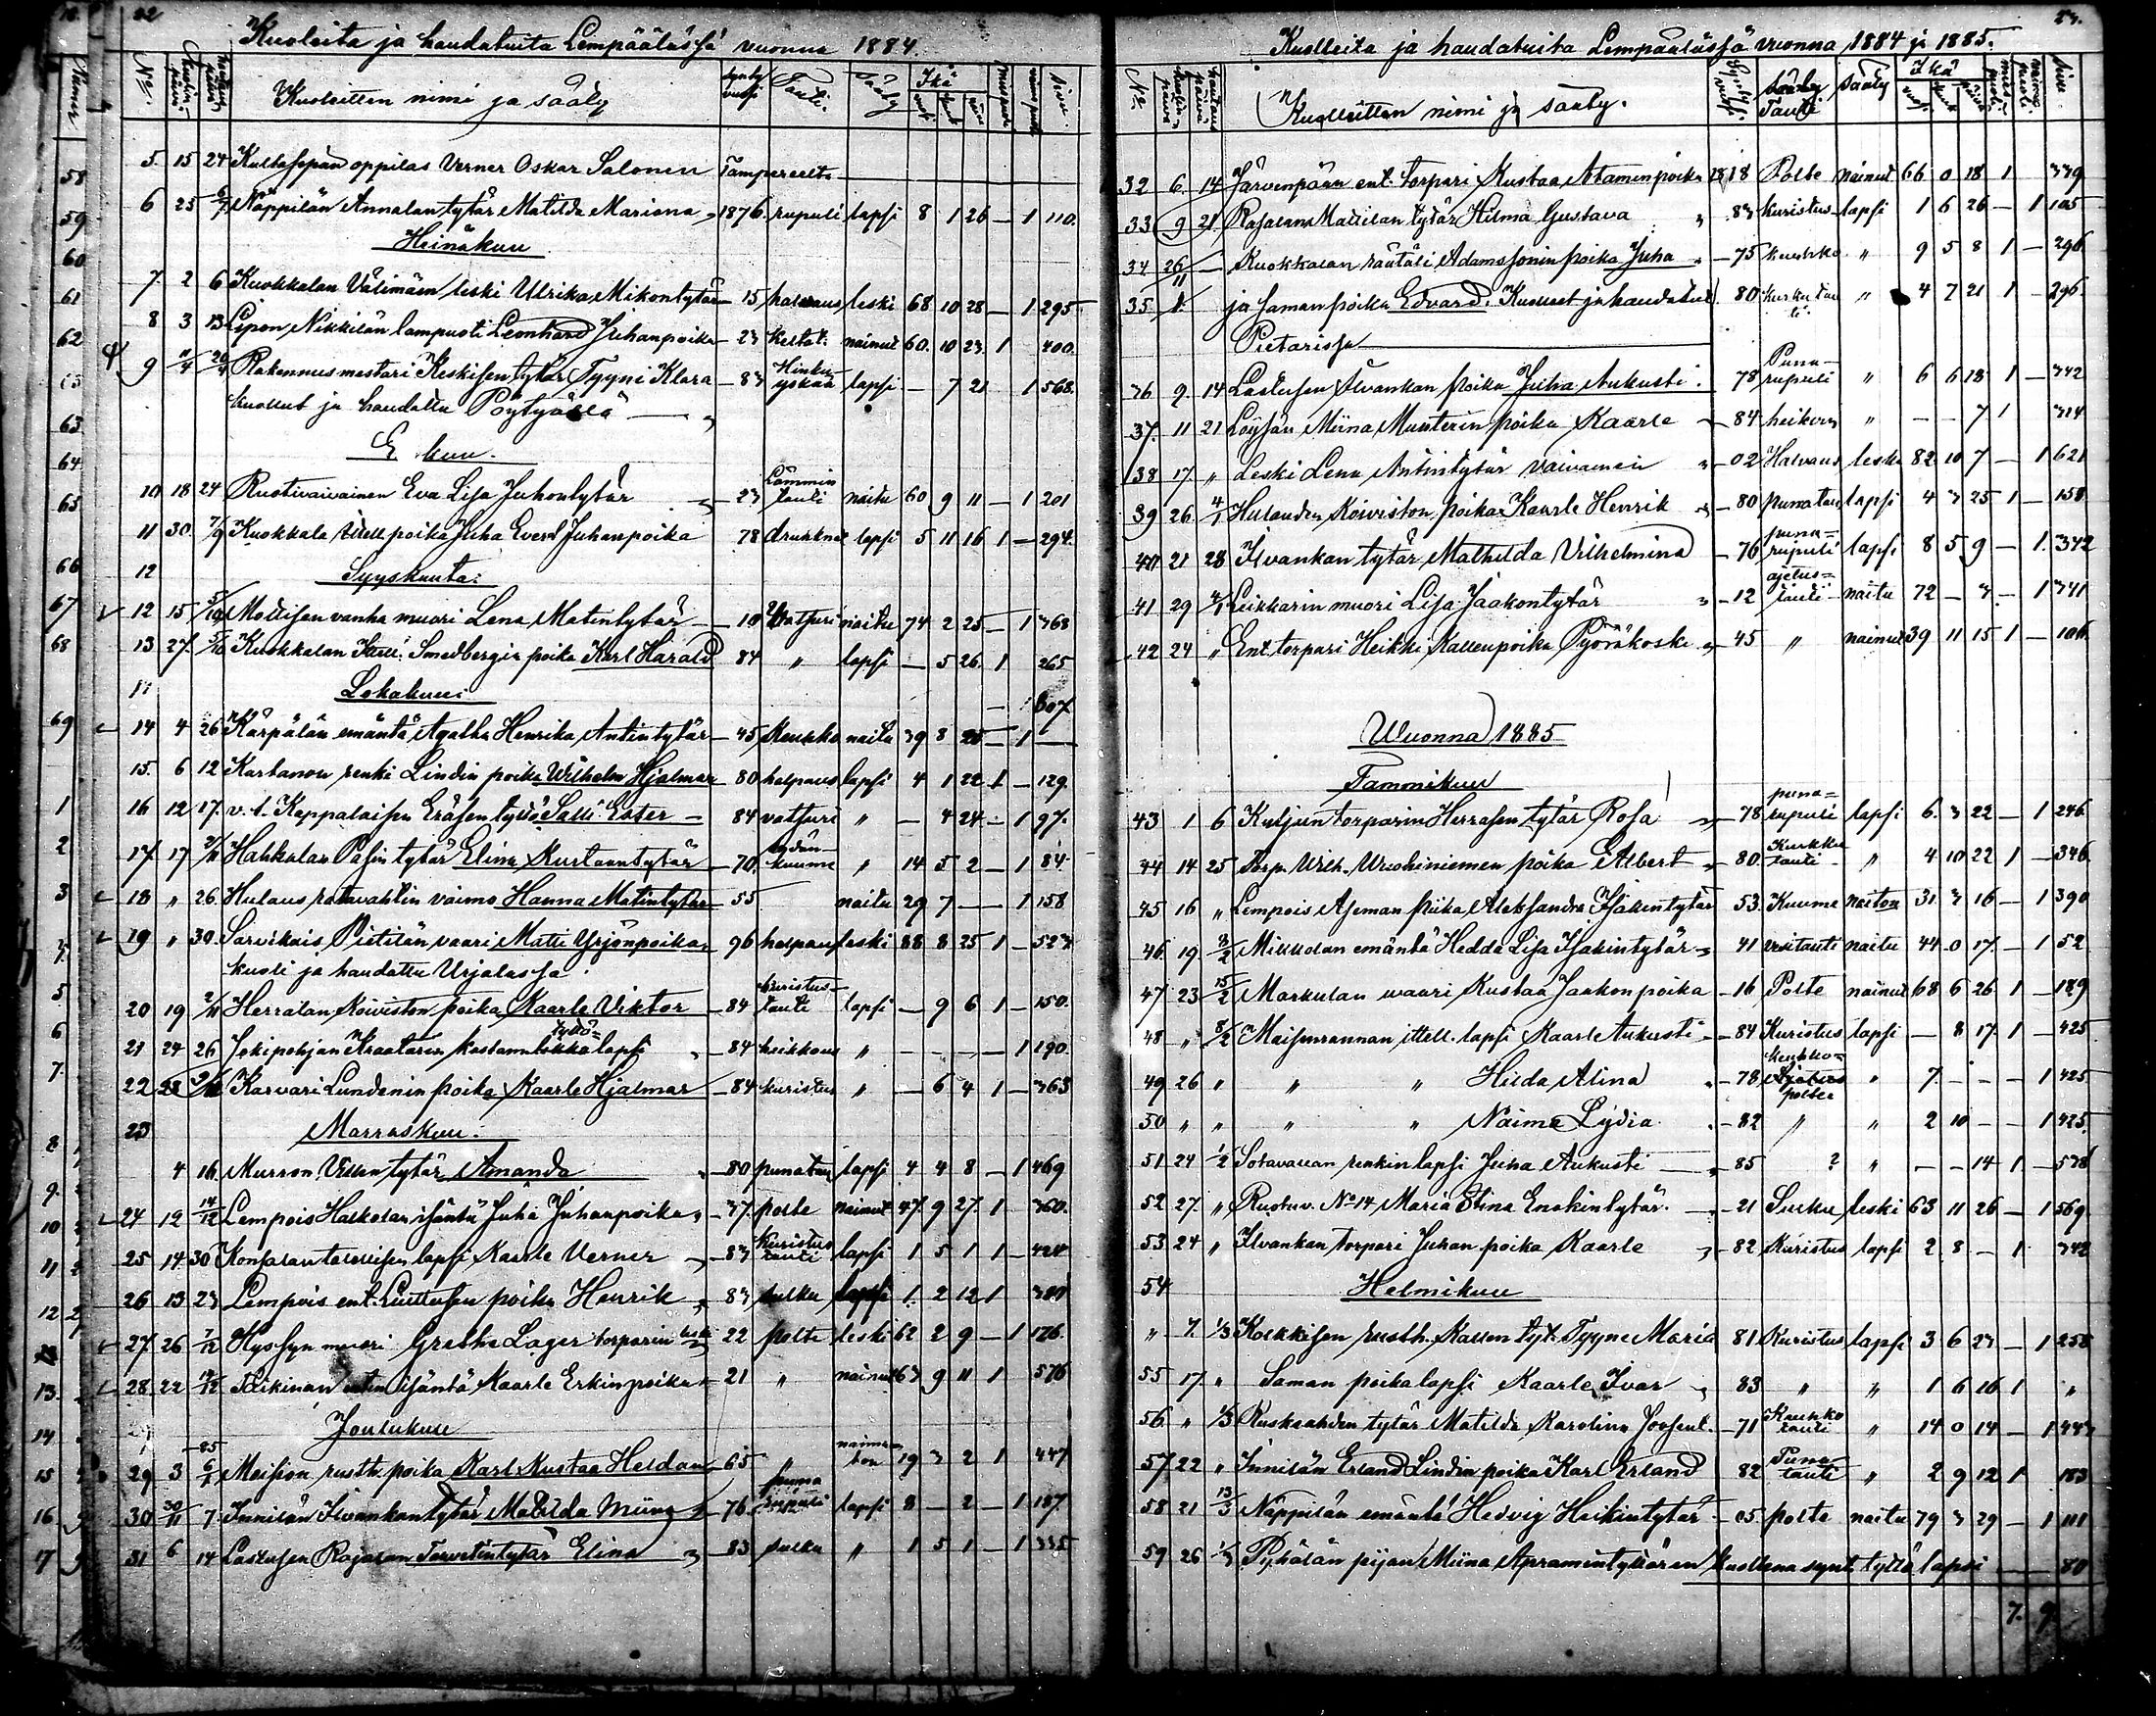 22
Kuoleita ja haudatuita Lempäälässä vuonna 1884
No. Kuolleitten nimi ja sääty Tauti. Sääty Ikä Sivu.
5. 15 24 Kultasepän oppilas Verner Oskar Salonen Tampereelta
6 25 6/7 Näppilän Annalan tytär Matilda Mariana 1876. rupuli lapsi 8 1 26 — 1 110.
Heinäkuu
7. 2 6 Kuokkalan Välimäen leski Ulrika Mikontytär 15 halvaus leski 68 10 28 — 1 295
8 3 13 Lipon, Nikkilän lampuoti Leonhard Juhanpoika 23 keltat. nainut 60. 10 23. 1 400.
9 Rakennusmestari Keskisen tytär Tyyni Klara 83 Hinku yskää lapsi — 7 21 1 568.
kuollut ja haudattu Pöytyällä
E kuu.
10 18 24 Ruotivaivainen Eva Lisa Juhontytär 23 Lämmin tauti naitu 60 9 11 — 1 201
11 30 7/9 Kuokkala itell poika Juha Evert Juhanpoika 78 drukknat lapsi 5 11 16 1 — 294.
12 Syyskuuta.
12 15 5/10 Mollisen vanha muori Lena Matintytär 10 Vatsuri naitu 74 2 25 — 1 363
13 27. 5/10 Kuokkalan Itell. Smedbergin poika Karl Harald 84 " lapsi — 5 26. 1 265
Lokakuu
307
14 4 26 Kärpälän emäntä Agatha Henrika Antintytär 45 Keuhko naitu 39 8 25 — 1 —
15. 6 12 Kartanon renki Lindin poika Wilhelm Hjalmar 80 halvaus lapsi 4 1 22 1 — 129.
16 12 17. v. t. Keppalaisen Eräsen tyttö Salli Ester 84 vatsuri " — 4 24 — 1 97.
17 17 2/11 Hahkalan Pasin tytär Elina Kustaantytär 70. kuume " 14 5 2 — 1 84.
18 " 26. Hulaus ratavahtin vaimo Hanna Matintytär 55 naitu 29 7 — — 1 158
19 " 30. Sarvikais Pietilän vaari Matti Yrjönpoika 96 halpaus leski 88 8 25 1 — 523
kuoli ja haudattu Urjalassa
20 19 2/11 Herralan Koiviston poika Kaarle Viktor 84 kuristus tauti lapsi — 9 6 1 — 150.
21 24 26 Jokipohjan Kraatarin tyttö lapsi 84 heikkous " — — — — 1 190
22 28 Karvari Lundenin poika Kaarle Hjalmar 84 kuristus " — 6 4 1 — 363
23 Marraskuu.
4 16. Murron Villen tytär Amanda 80 punatau lapsi 4 4 8 — 1 469
24 12 14/12 Lempois Halkolan isäntä Juha Juhanpoika 37. polte nainut 47. 9 27. 1 360.
25 14 30 Konsalan talollisen lapsi Kaarle Verner 83 Kuristus tauti lapsi 1 5 1 1 — 424
26 13 23 Lempois ent. poika Henrik 83 sulku lapsi 1. 2 12 1
27 26 7/12 Hyssyn muori Gretha Lager torparin leski 22 polte leski 62 2 9 — 1 126.
28 22 14/12 isäntä Kaarle Erkinpoika 21 " nainut 63 9 11 1 576
Joulukuu
29 3 6/1 Moision rusth. poika Karl Kustaa Heldan 65 " naimaton 19 3 2 1 447
30 30/11 7. Innilän Ilvankan tytär Matilda Miina 76. puna rupuli lapsi 8 — 2 — 1 187.
31 6 14 Lastusen Rajalan tytär Elina 83 sulku " 1 5 1 — 1 335
Kuolleita ja haudatuita Lempäälässä vuonna 1884 ja 1885.
No Kuolleitten nimi ja sääty. Tauti sääty Ikä Sivu
32 6. 14 Järvenpään ent. torpari Kustaa Ataminpoika 1818 Polte nainut 66 0 18 1 339
33 9 21 Rajalan Matilan tytär Hilma Gustava " 83 kuristus lapsi 1 6 26 — 1 105
34 26/11 — Kuokkalan räätäli Adamssonin poika Juha — 75 keuhko " 9 5 8 1 — 296
35 1. ja saman poika Edvard. Kuolleet ja haudatut 80 " 4 7 21 1 — 296.
Pietarissa
36 9. 14 Lastusen Ilvankan poika Juha Aukusti. 78 Puna-rupuli " 6 6 18 1 — 342
37. 11 21 Löysän Miina Munterin poika Kaarle 84 heikous " — — 7 1 314
38 17. " Leski Lena Antintytär vaivainen 02 Halvaus leski 82 10 7 — 1 621
39 26. 4/1 Hulauden Koiviston poika Kaarle Henrik 80 punatau lapsi 4 3 25 1 — 158
40 21 28 Ilvankan tytär Mathilda Vilhelmina 76 puna-rupuli lapsi 8 5 9 — 1. 342
41 29 4/1 Leikkarin muori Lisa Jaakontytär 12 ajetus-tauti naitu 72 — 3. — 1 341
42 24 " Ent torpari Heikki Kallenpoika Pyöräkoski 45 " nainut 39 11 15 1 — 106.
Wuonna 1885
Tammikuu
43 1 6 Kuljun torparin Herrasen tytär Rosa 78 puna-rupuli lapsi 6. 3 22 — 1 246
44 14 25 Torp. Wilh. Uucheiniemen poika Albert 80. Kurkku tauti " 4 10 22 1 — 346
45 16 " Lempois Aseman piika Aleksandra Isakintytär 53. Kuume naiton 31. 3 16 — 1 390
46. 19 Mikkolan emäntä Hedda Lisa Isakintytär 41 vesitauti naitu 44 0 17. — 1 52
47 23 15/2 Markulan waari Kustaa Jaakonpoika 16 Polte nainut 68 6 26 1 — 189
48 " 8/2 Maisunrannan itell. lapsi Kaarle Aukusti 84 Kuristus lapsi — 8 17. 1 — 425
49 26 " " " Hilda Alina 78 keuhko-polte " 7. — — — 1 425
50 " " " " Naima Lydia 82 " " 2 10 — — 1 425.
51 24 1/2 Sotavallan renkin lapsi Juha Aukusti 85 ? " — — 14 1 — 538
52 27. " Ruotuv. No 14 Maria Stina Enokintytär. 21 Sulku leski 63 11 26 — 1 569.
53 24 " Ilvankan torpari Juhan poika Kaarle 82 Kuristus lapsi 2 8 — 1 342
54 Helmikuu
" 7. 1/3 Kolkkisen rusth. Kallen tyt. Tyyne Maria 81 Kuristus lapsi 3 6 23 — 1 258
55 17. " Saman poikalapsi Kaarle Ivar 83 " " 1 6 16 1 "
56 " 1/3 tytär Matilda Karolina 71 Keuhko tauti " 14 0 14 — 1 443
57 22 " Innilän Erland Lindin poika Karl Erland 82 Puna-tauti " 2 9 12 1 183
58 21 13/3 Näppilän emäntä Hedvig Heikintytär 05. polte naitu 79 3 29 — 1 111
59 26 1/3 Pyhälän pijan Miina Apramintyttären kuollena synt. tyttö lapsi 80
7. 9.